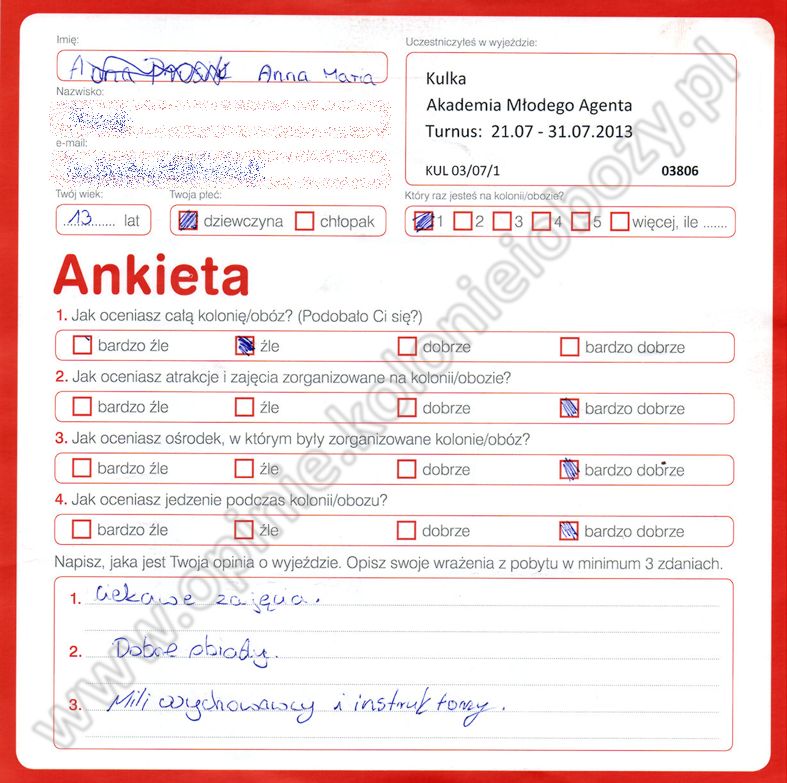 Imię:
Anna Maria
Nazwisko:
e-mail:
Uczestniczyłeś w wyjeździe:
Kulka
Akademia Młodego Agenta
Turnus: 21.07 - 31.07.2013
KUL 03/07/1 03806
Twój wiek: Twoja płeć: Który raz jesteś na kolonii/obozie?
13 lat dziewczyna chłopak 1 2 3 4 5 więcej, ile .......
Ankieta
1. Jak oceniasz całą kolonię/obóz? (Podobało Ci się?)
bardzo źle źle dobrze bardzo dobrze
2. Jak oceniasz atrakcje i zajęcia zorganizowane na kolonii/obozie?
bardzo źle źle dobrze bardzo dobrze
3. Jak oceniasz ośrodek, w którym były zorganizowane kolonie/obóz?
bardzo źle źle dobrze bardzo dobrze
4. Jak oceniasz jedzenie podczas kolonii/obozu?
bardzo źle źle dobrze bardzo dobrze
Napisz, jaka jest Twoja opinia o wyjeździe. Opisz swoje wrażenia z pobytu w minimum 3 zdaniach.
1. Ciekawe zajęcia.
2. Dobre obiady.
3. Mili wychowawcy i instruktorzy.
www.opinie.kolonieiobozy.pl